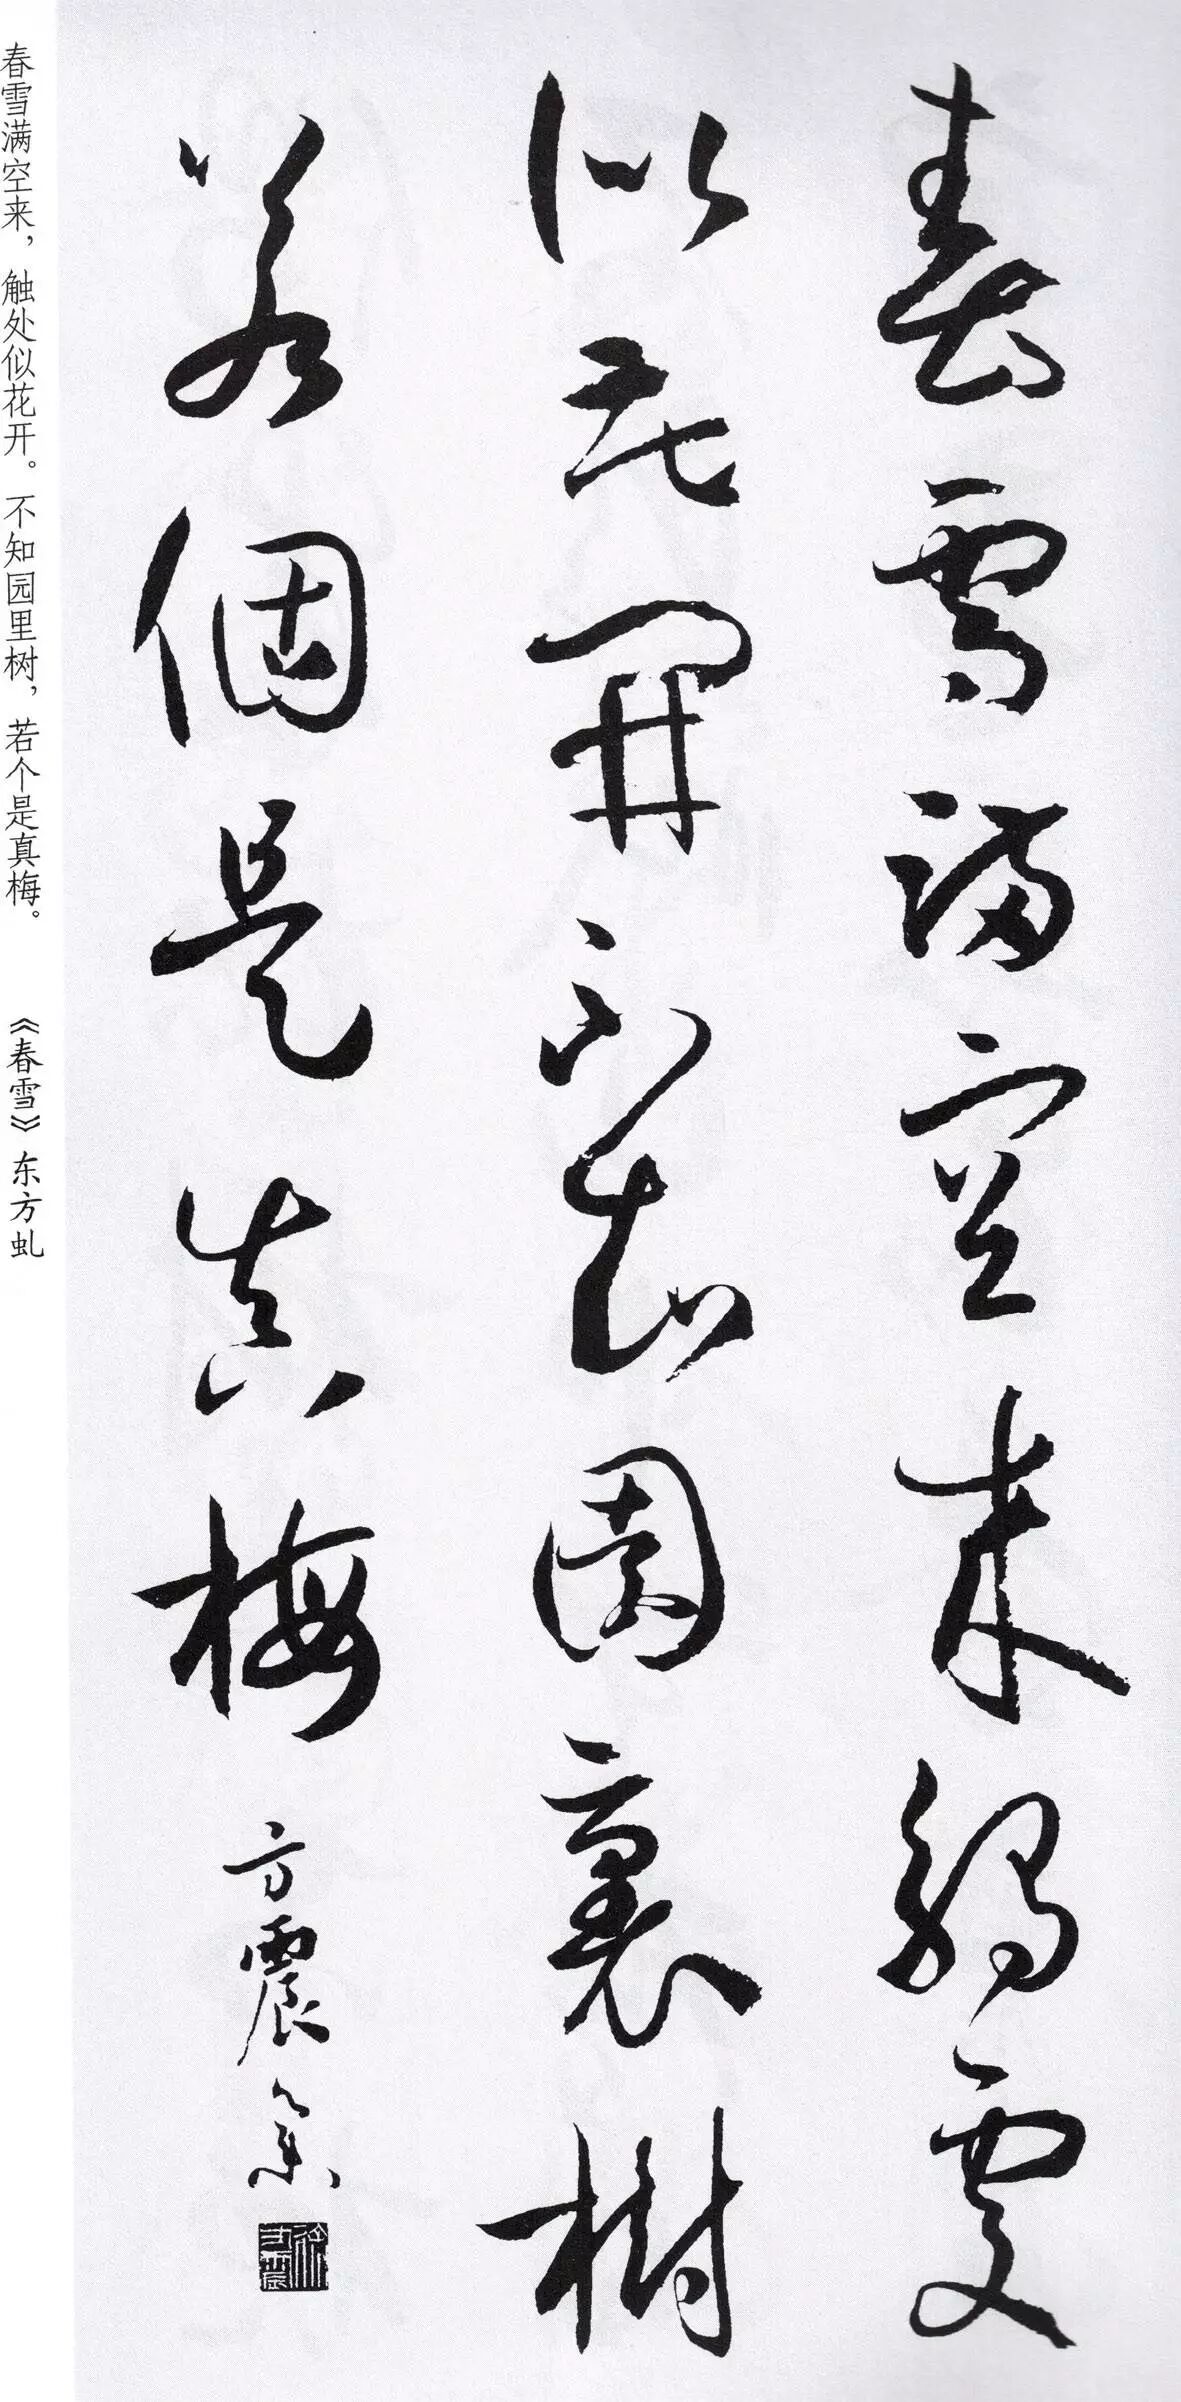 春雪满空来，触处似花开。不知园里树，若个是真梅。 《春雪》东方虬
春雪满空来觸處
似花開不知園裏樹
若個是真梅 方震